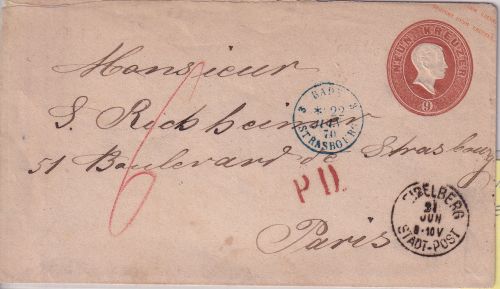 NEUN KREUZER
9
Monsieur
S. Richheimer
51 Boulevard de Strasbourg
Paris
6
3 BADE 3
* 22
70
STRASBOURG
P.D.
21
JUN
STADT-POST